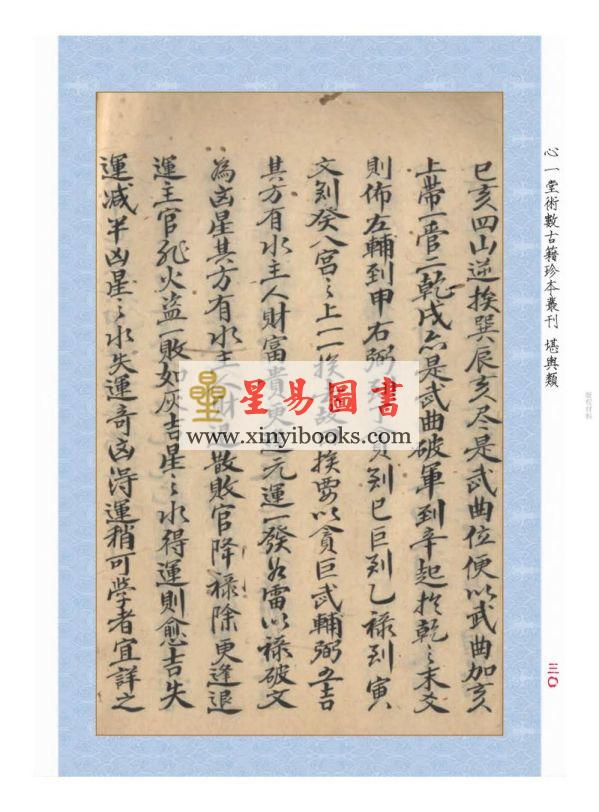 心一堂術數古籍珍本叢刊 堪輿類
三〇
巳亥四山逆挨巽辰亥尽是武曲位便以武曲加亥
上帶一管二乾戌亦是武曲破軍到辛起於乾之末爻
則佈左輔到申右弼到丁貪到巳巨到乙祿到寅
文到癸八宮之上一一挨 故曰挨要以貪巨武輔弼五吉
其方有水主人財富貴更 元運一發如雷以祿破文
為凶星其方有水主人財退散敗官降祿除更逢退
運主官非火盜一敗如灰吉星之水得運則愈吉失
運減半凶星之水失運奇凶淂運稍可學者宜詳之
星易圖書
www.xinyibooks.com